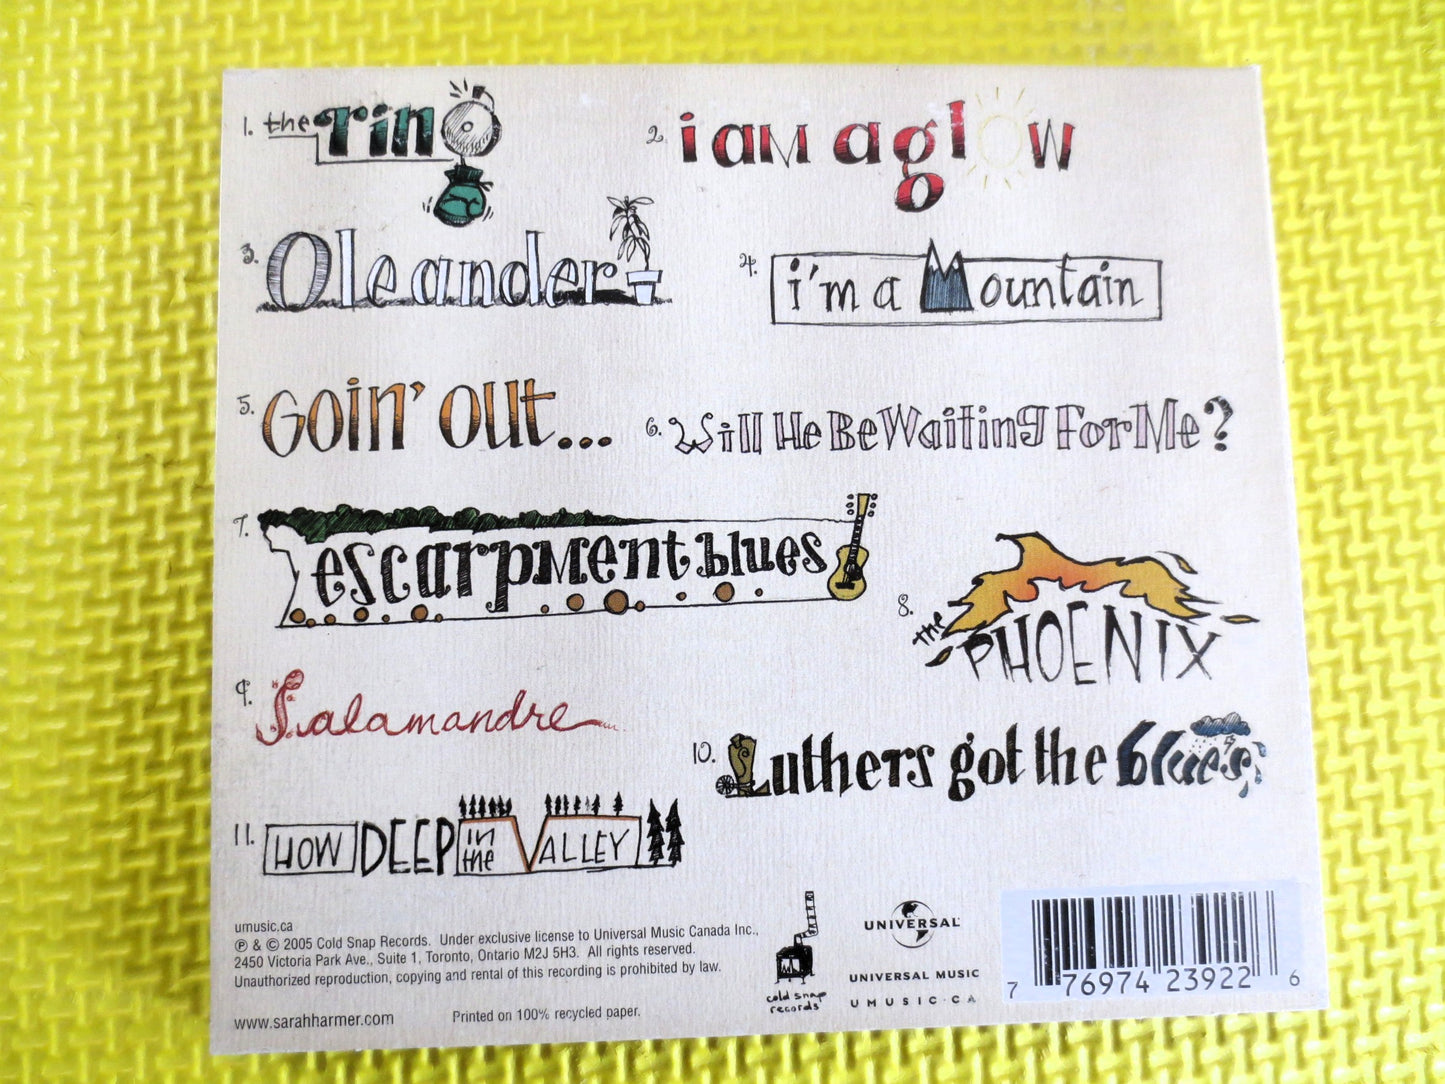 1. the ring
2. i am aglow
3. Oleander
4. i'm a Mountain
5. Goin' out...
6. Will He Be Waiting For Me?
7. escarpment blues
8. the PHOENIX
9. Salamandre
10. Luthers got the blues
11. HOW DEEP in the VALLEY
umusic,ca
℗ & © 2005 Cold Snap Records. Under exclusive license to Universal Music Canada Inc.,
2450 Victoria Park Ave., Suite 1, Toronto, Ontario M2J 5H3. All rights reserved.
Unauthorized reproduction, copying and rental of this recording is prohibited by law.
www.sarahharmer.com
Printed on 100% recycled paper.
cold snap
records
UNIVERSAL
UNIVERSAL MUSIC
UMUSIC.CA
7 76974 23922 6